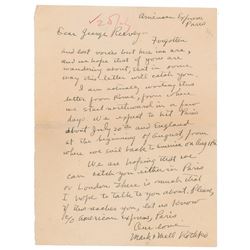 American Express
Paris
Dear George Reavey —
Forgotten
and lost voices but here we are,
and we hope that if you are
wandering about, that in some
way this letter will catch you.
I am actually writing this
letter from Rome, from where
we start northward in a few
days. We expect to hit Paris
about July 20th and England
at the beginning of August from
where we sail back to America on Aug 19th
We are hoping that we
can catch you either in Paris
or London. There is much that
I hope to talk to you about. Please,
if this reaches you, let us know
c/o American Express, Paris
Our love
Mark & Mell Rothko